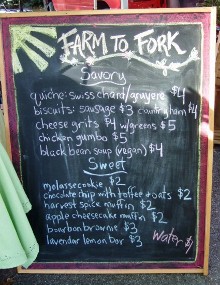 FARM TO FORK
Savory
quiche: swiss chard/gruyere $4
biscuits: sausage $3 country ham $4
cheese grits $4 w/greens $5
chicken gumbo $5
black bean soup (vegan) $4
Sweet
molasses cookie $2
chocolate chip with toffee + oats $2
harvest spice muffin $2
apple cheesecake muffin $2
bourbon brownie $3
lavendar lemon bar $3
Water $1